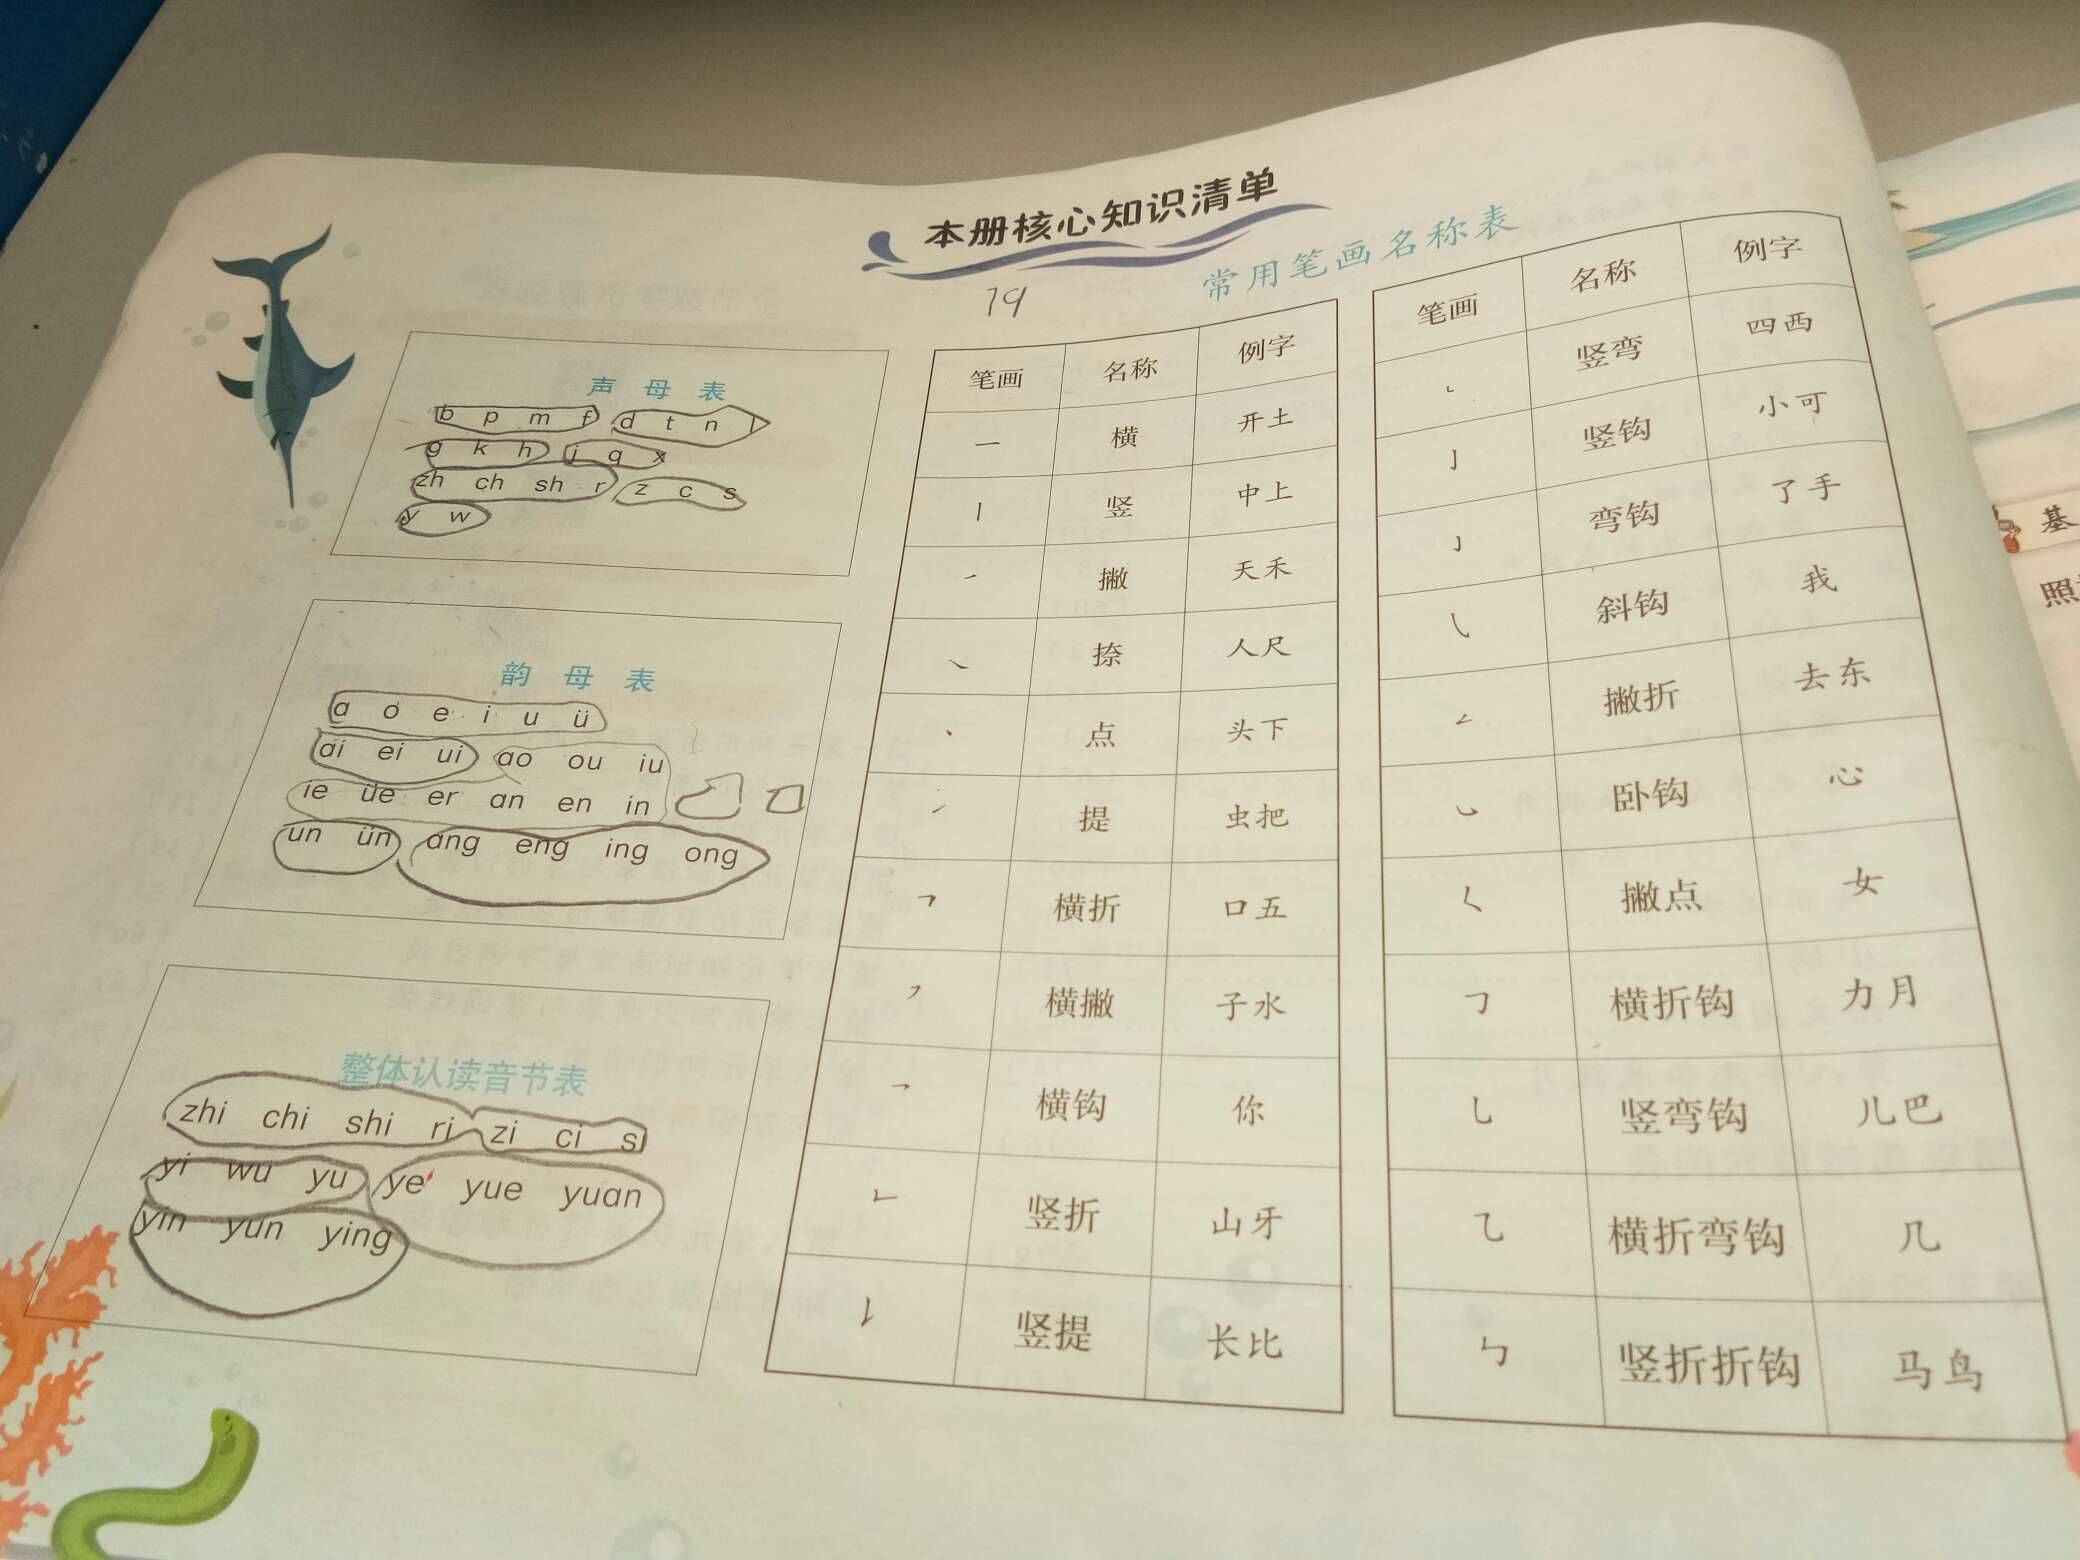 本册核心知识清单
19
声母表
b p m f d t n l
g k h j q x
zh ch sh r z c s
y w
韵母表
a o e i u ü
ai ei ui ao ou iu
ie üe er an en in
un ün ang eng ing ong
整体认读音节表
zhi chi shi ri zi ci s
yi wu yu ye yue yuan
yin yun ying
常用笔画名称表
笔画 名称 例字
㇐ 横 开土
㇑ 竖 中上
㇒ 撇 天禾
㇏ 捺 人尺
㇔ 点 头下
㇀ 提 虫把
㇕ 横折 口五
㇇ 横撇 子水
㇖ 横钩 你
㇗ 竖折 山牙
㇙ 竖提 长比
笔画 名称 例字
㇄ 竖弯 四西
㇚ 竖钩 小可
㇁ 弯钩 了手
㇂ 斜钩 我
㇜ 撇折 去东
㇃ 卧钩 心
㇛ 撇点 女
㇆ 横折钩 力月
㇟ 竖弯钩 儿巴
㇈ 横折弯钩 几
㇉ 竖折折钩 马鸟
基
照